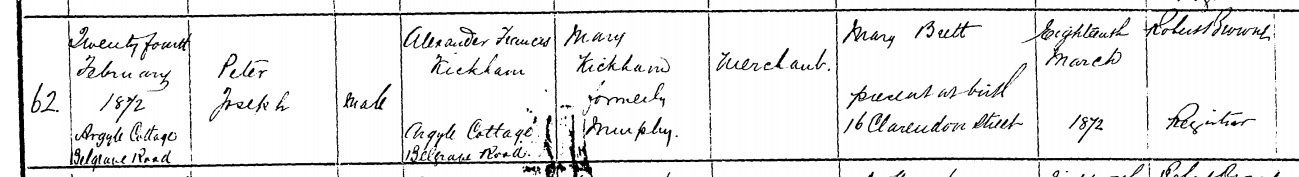 62.
Twenty fourth
February
1872
Argyle Cottage
Belgrave Road
Peter
Joseph
Male
Alexander Francis
Kickham
Argyle Cottage
Belgrave Road.
Mary
Kickham
formerly
Murphy.
Merchant.
Mary Brett
present at birth
16 Clarendon Street
Eighteenth
March
1872
Robert Browne
Registrar